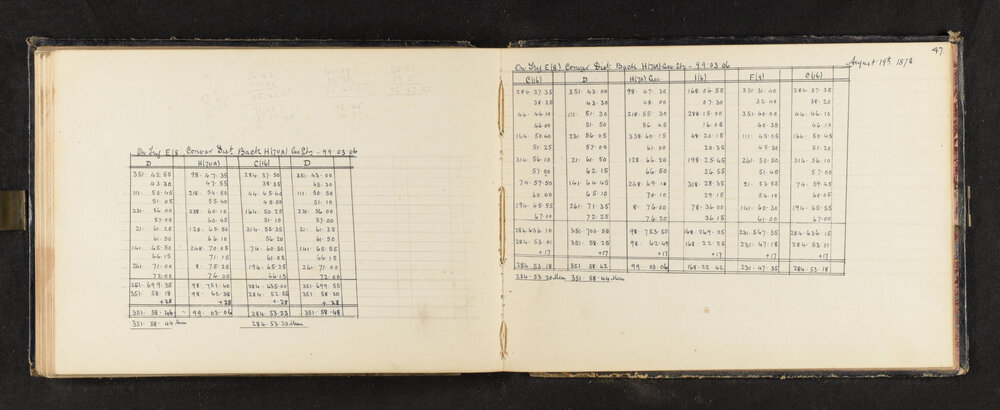 On Trig E(8 Conver Dist Back H(7(A) Geo Stn - 99.03.06
D H(7(A) C(16) D
351.42.55 98.47.35 284.37.50 351.43.00
43.30 47.55 38.35 43.30
111.50.45 218.54.50 44.45.40 111.50.50
51.05 55.40 45.50 51.10
231.56.00 338.60.10 164.50.25 231.56.00
57.00 60.45 51.10 57.00
21.61.25 128.65.50 314.55.35 21.61.25
61.50 66.10 56.20 61.50
141.65.50 248.70.05 74.60.50 141.65.55
66.15 71.15 61.05 66.15
261.71.00 8.75.25 194.65.25 261.71.00
72.00 76.00 66.15 72.00
351.699.35 98.751.40 284.635.00 351.699.55
351.58.18 98.62.38 284.52.55 351.58.20
+28 +28 +28 +28
351.58.46 99.03.06 284.53.23 351.58.48
351.58.44 Mean 284.53.20 Mean
47
August 19th 1878
On Trig E(8) Conver Dist Back H(7(A) Geo Stn - 99.03.06
C(16) D H(7A) Geo. I(6) F(9) C(16)
284.37.35 351.43.00 98.47.30 168.06.55 231.31.40 284.37.35
38.25 43.30 48.00 07.30 32.40 38.20
44.46.10 111.51.30 218.55.30 288.15.00 351.40.00 44.46.10
46.00 51.50 56.45 16.05 40.35 46.10
164.50.40 231.56.05 338.60.15 48.20.15 111.45.05 164.50.45
51.25 57.00 61.30 20.35 45.30 51.20
314.56.10 21.61.50 128.66.20 198.25.45 261.50.50 314.56.10
57.00 62.15 66.50 26.55 51.40 57.00
74.59.50 141.64.45 248.69.10 318.28.35 21.53.55 74.59.45
60.00 65.10 70.10 29.15 54.10 60.05
194.65.55 261.71.35 8.76.00 78.36.00 141.60.30 194.65.55
67.00 72.25 76.20 36.15 61.00 67.00
284.636.10 351.700.55 98.753.50 168.269.05 231.567.35 284.636.15
284.53.01 351.58.25 98.62.49 168.22.25 231.47.18 284.53.01
+17 +17 +17 +17 +17
284.53.18 351.58.42 99.03.06 168.22.42 231.47.35 284.53.18
284.53.20 Mean 351.58.44 Mean